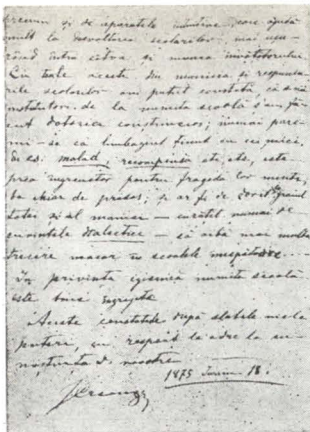 precum și de aparatele intuitive, care ajută
mult la desvoltarea scolarilor; mai ușu-
rând întru câtva și munca învățătorului.
Din toate aceste din manuscă și respunsu-
rile scolarilor am putut constata, că d-nii
institutori de la numita scoală 'și-au fă-
cut datoria conștiincios; numai pare-
mi-se ca limbagiul fiind cu cei mici,
de es: molad, recompensă etc. etc., este
prea îngreuetor pentru frageda lor minte,
ba chiar de prisos; și ar fi de dorit graiul
lates și al maniar — curățit numai de
cuvintele dialectice — să aibă mai multă
trecere macar în scoalele începătoare...
În privința igienică numita scoală
este bine îngrijită
Aceste constatate după slabele mele
puteri, cu respect le aduc la cu-
noștința d. noastre
1875 Iunie 18.